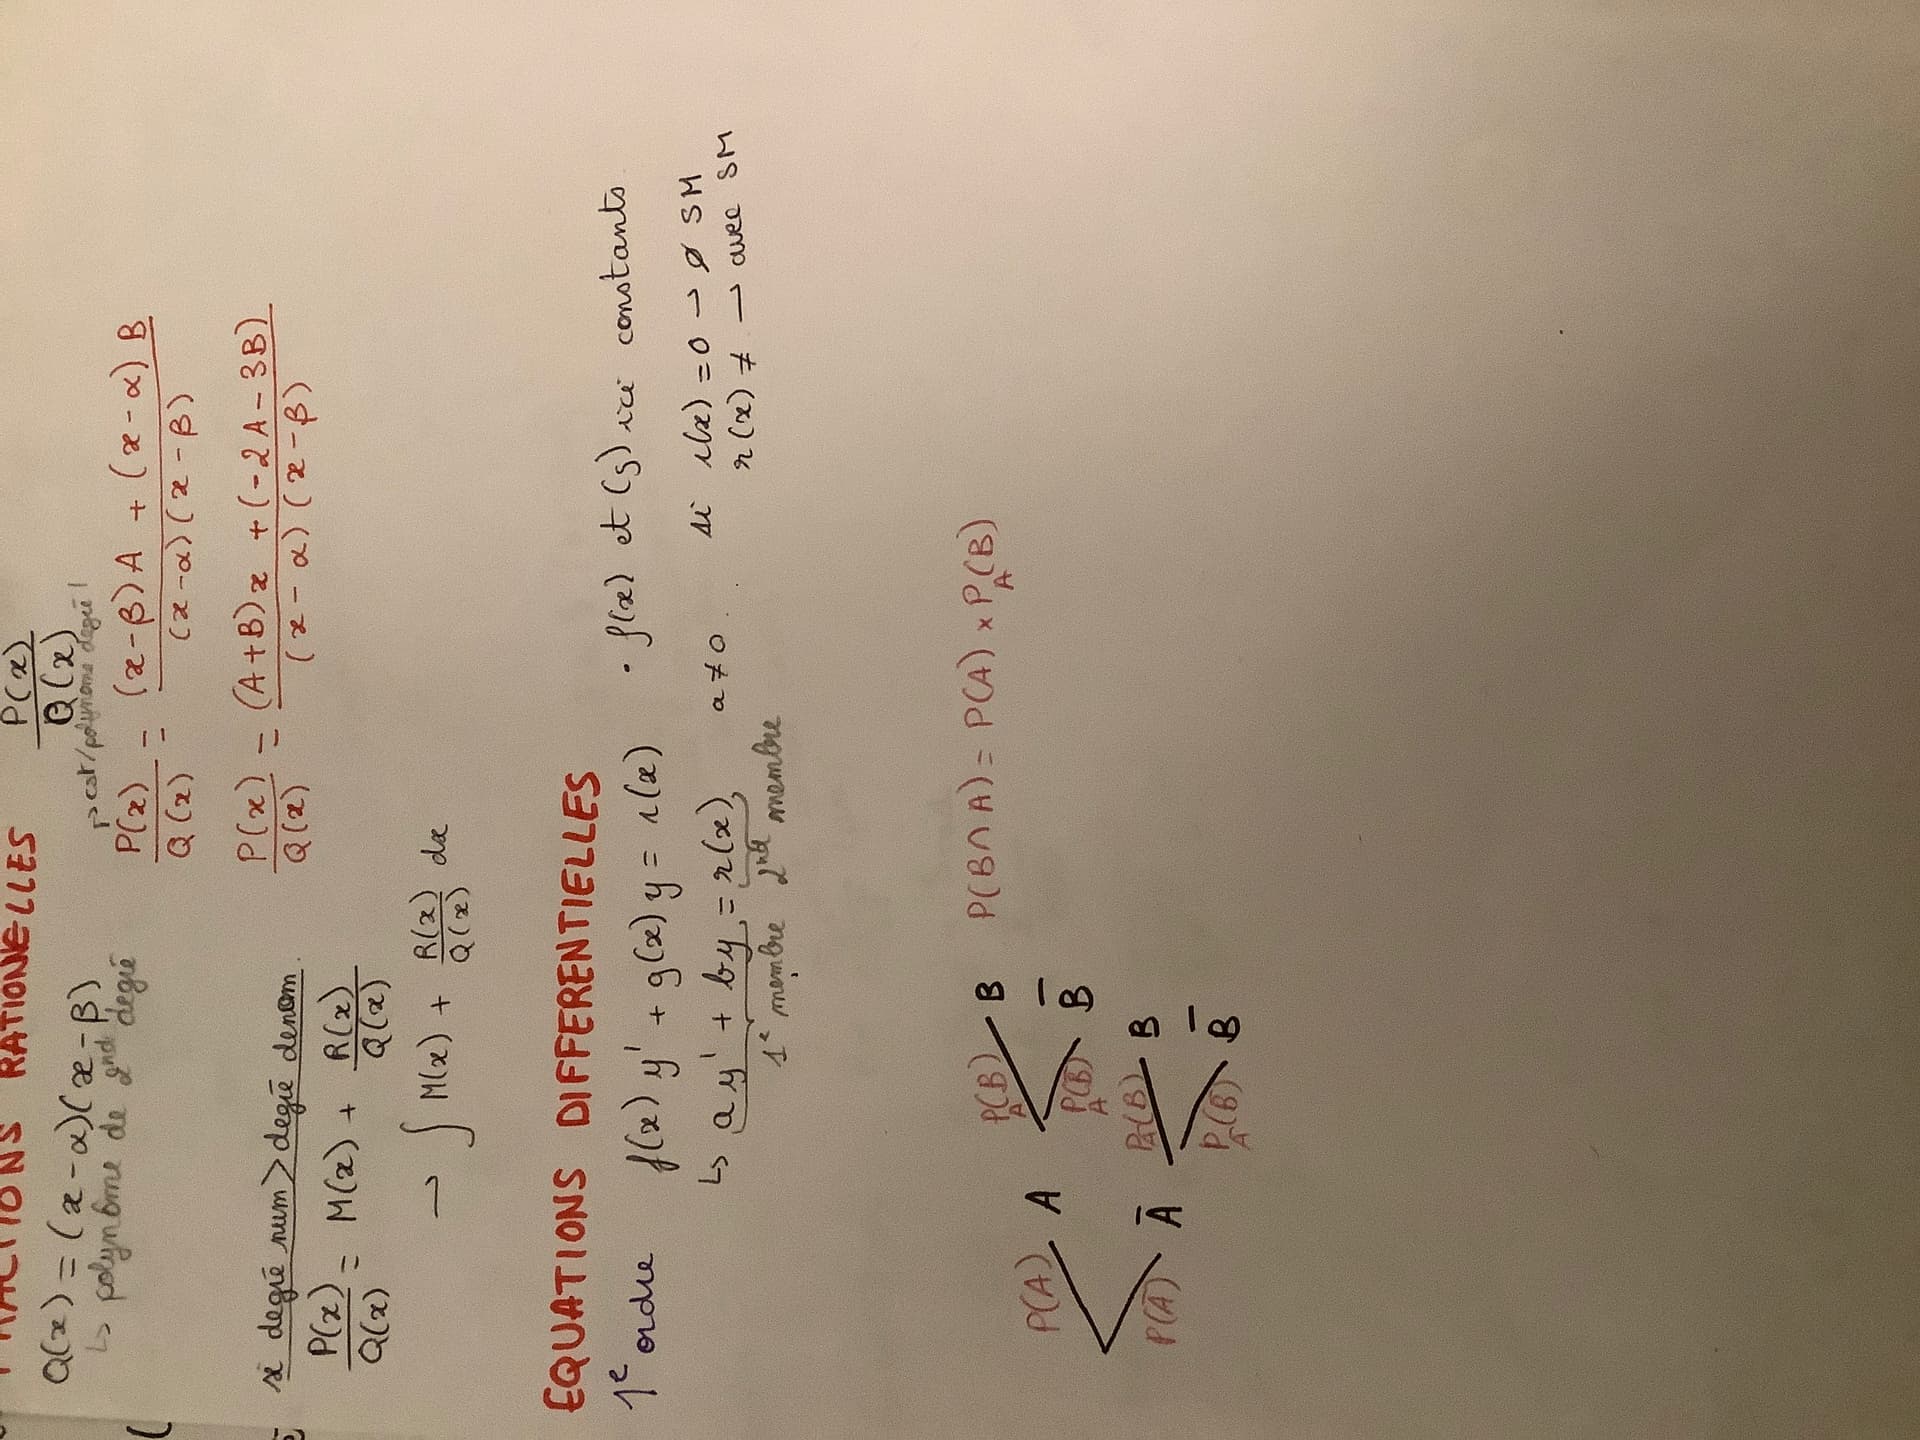 FRACTIONS RATIONNELLES P(x)/Q(x)
Q(x) = (x-α)(x-β)
↳ polynôme de 2nd degré
↱ cst/polynome degré 1
P(x)/Q(x) = ((x-β)A + (x-α)B)/((x-α)(x-β))
P(x)/Q(x) = ((A+B)x + (-2A-3B))/((x-α)(x-β))
si degré num > degré denom.
P(x)/Q(x) = M(x) + R(x)/Q(x)
→ ∫ M(x) + R(x)/Q(x) dx
EQUATIONS DIFFERENTIELLES
1e ordre f(x) y' + g(x) y = r(x) • f(x) et (g) ici constants.
↳ ay' + by = r(x) a ≠ 0. si r(x) = 0 → ∅ SM
1e membre 2nd membre r(x) ≠ → avec SM
P(A) A P_A(B) B
P_A(B̄) B̄
P(Ā) Ā P_Ā(B) B
P_Ā(B̄) B̄
P(B∩A) = P(A) × P_A(B)